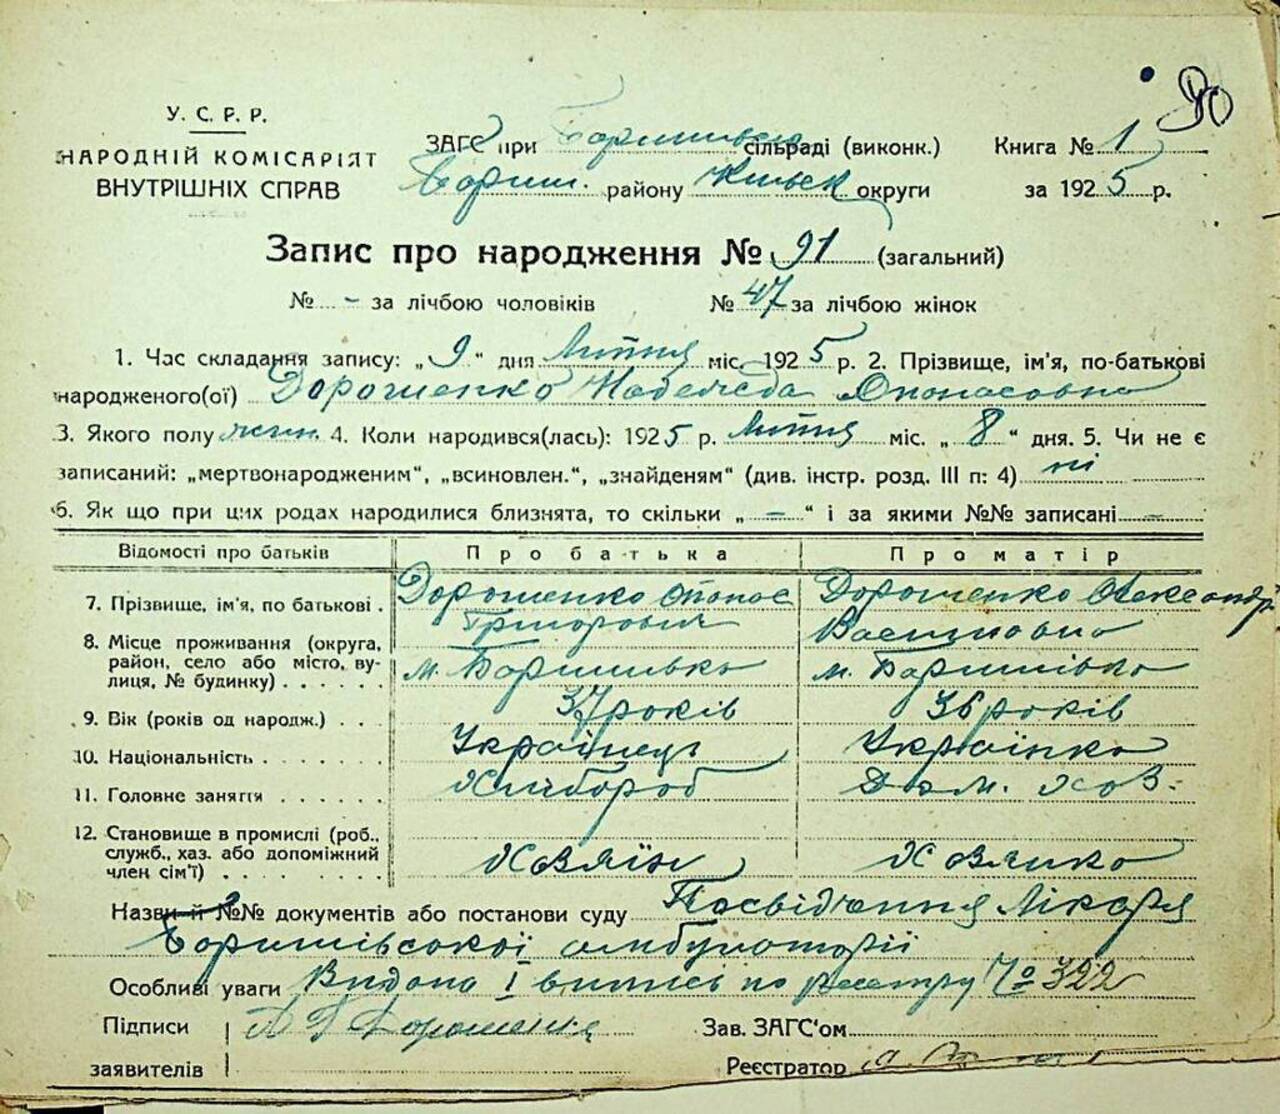 У. С. Р. Р.
НАРОДНІЙ КОМІСАРІЯТ
ВНУТРІШНІХ СПРАВ
ЗАГС при сільраді (виконк.) Книга № 1
Бориш. району Київськ округи за 1925 р.
Запис про народження № 91 (загальний)
№ - за лічбою чоловіків № 47 за лічбою жінок
1. Час складання запису: „9“ дня Липня міс. 1925 р. 2. Прізвище, ім'я, по-батькові
народженого(ої) Дорошенко Надежда Опонасовна
3. Якого полу жін. 4. Коли народився(лась): 1925 р. Липня міс. „8“ дня. 5. Чи не є
записаний: „мертвонародженим“, „всиновлен.“, „знайденям“ (див. інстр. розд. III п: 4) ні
6. Як що при цих родах народилися близнята, то скільки „-“ і за якими №№ записані -
Відомості про батьків Про батька Про матір
7. Прізвище, ім'я, по батькові . Дорошенко Опонас Григорович Дорошенко Олександр Василовна
8. Місце проживання (округа, район, село або місто, вулиця, № будинку) . . . . . . м. Боришпілько м. Боришпілько
9. Вік (років од народж.) . . . 37 років 36 років
10. Національність . . . . . . . Українець Українка
11. Головне заняття . . . . . . Хлібороб Дом. хоз.
12. Становище в промислі (роб., служб., хаз. або допоміжний член сім'ї) . . . . . . . . Хозяїн Хозяйка
Назви й №№ документів або постанови суду Посвідчення Лікаря
Боришпівської амбулоторії
Особливі уваги Видана I випись по реєстру № 322
Підписи А Г Дорошенко Зав. ЗАГС'ом
заявителів Реєстратор